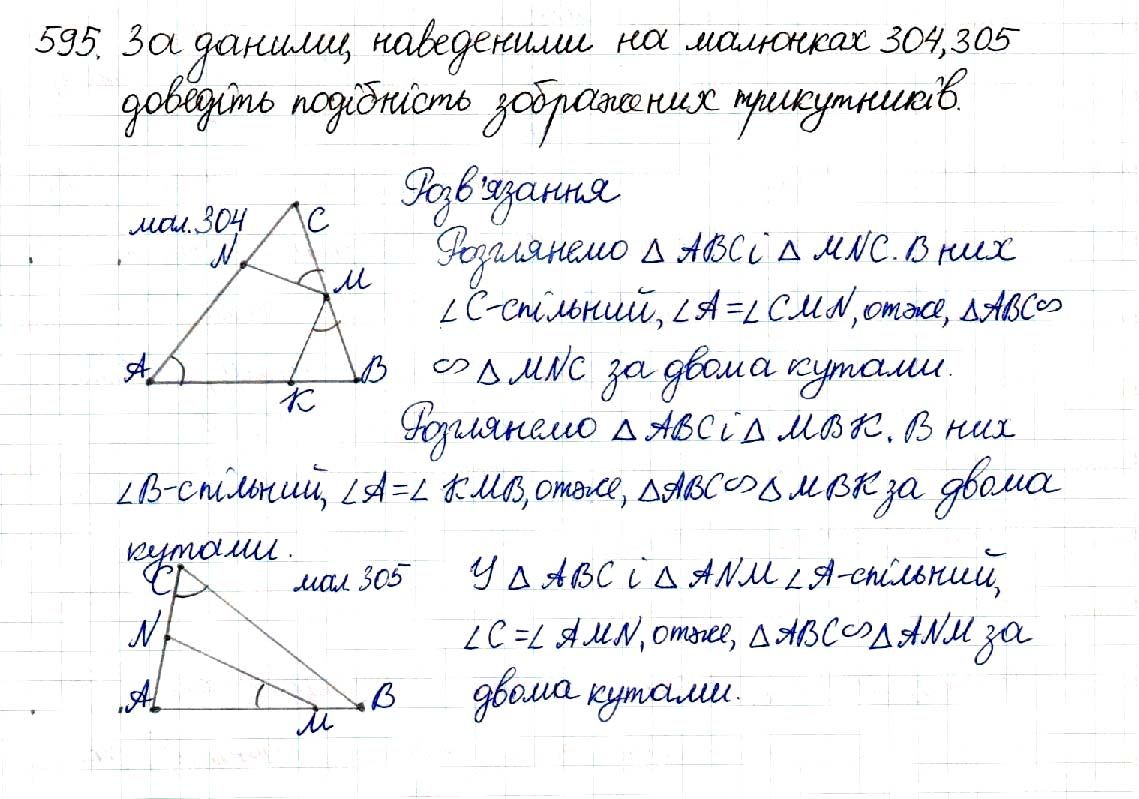 595. За даними, наведеними на малюнках 304, 305
доведіть подібність зображених трикутників.
Розв'язання
мал. 304
C
N
M
A
K
B
Розглянемо △ ABC і △ MNC. В них
∠C-спільний, ∠A = ∠CMN, отже, △ABC∽
∽ △ MNC за двома кутами.
Розглянемо △ ABC і △ MBK. В них
∠B-спільний, ∠A = ∠ KMB, отже, △ABC∽△MBK за двома
кутами.
C
мал 305
N
A
M
B
У △ ABC і △ ANM ∠A-спільний,
∠C = ∠ AMN, отже, △ABC∽△ANM за
двома кутами.